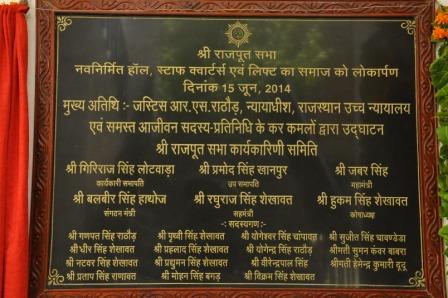 श्री राजपूत सभा
नवनिर्मित हॉल, स्टाफ क्वार्टर्स एवं लिफ्ट का समाज को लोकार्पण
दिनांक 15 जून, 2014
मुख्य अतिथि :- जस्टिस आर.एस.राठौड़, न्यायाधीश, राजस्थान उच्च न्यायालय
एवं समस्त आजीवन सदस्य-प्रतिनिधि के कर कमलों द्वारा उद्घाटन
श्री राजपूत सभा कार्यकारिणी समिति
श्री गिरिराज सिंह लोटवाड़ा श्री प्रमोद सिंह खानपुर श्री जबर सिंह
कार्यकारी सभापति उप सभापति महामंत्री
श्री बलबीर सिंह हाथोज श्री रघुराज सिंह शेखावत श्री हुकम सिंह शेखावत
संगठन मंत्री सहमंत्री कोषाध्यक्ष
-: सदस्यगण :-
श्री गणपत सिंह राठौड़ श्री पृथ्वी सिंह शेखावत श्री योगेश्वर सिंह चांपावत श्री सुजीत सिंह चावण्डेडा
श्री धीर सिंह शेखावत श्री प्रहलाद सिंह शेखावत श्री योगेन्द्र सिंह राठौड़ श्रीमती सुमन कंवर बाबरा
श्री नटवर सिंह शेखावत श्री प्रद्युमन सिंह शेखावत श्री वीरेन्द्रपाल सिंह श्रीमती हेमेन्द्र कुमारी दूदू
श्री प्रताप सिंह राणावत श्री मोहन सिंह बगड़ श्री विक्रम सिंह शेखावत